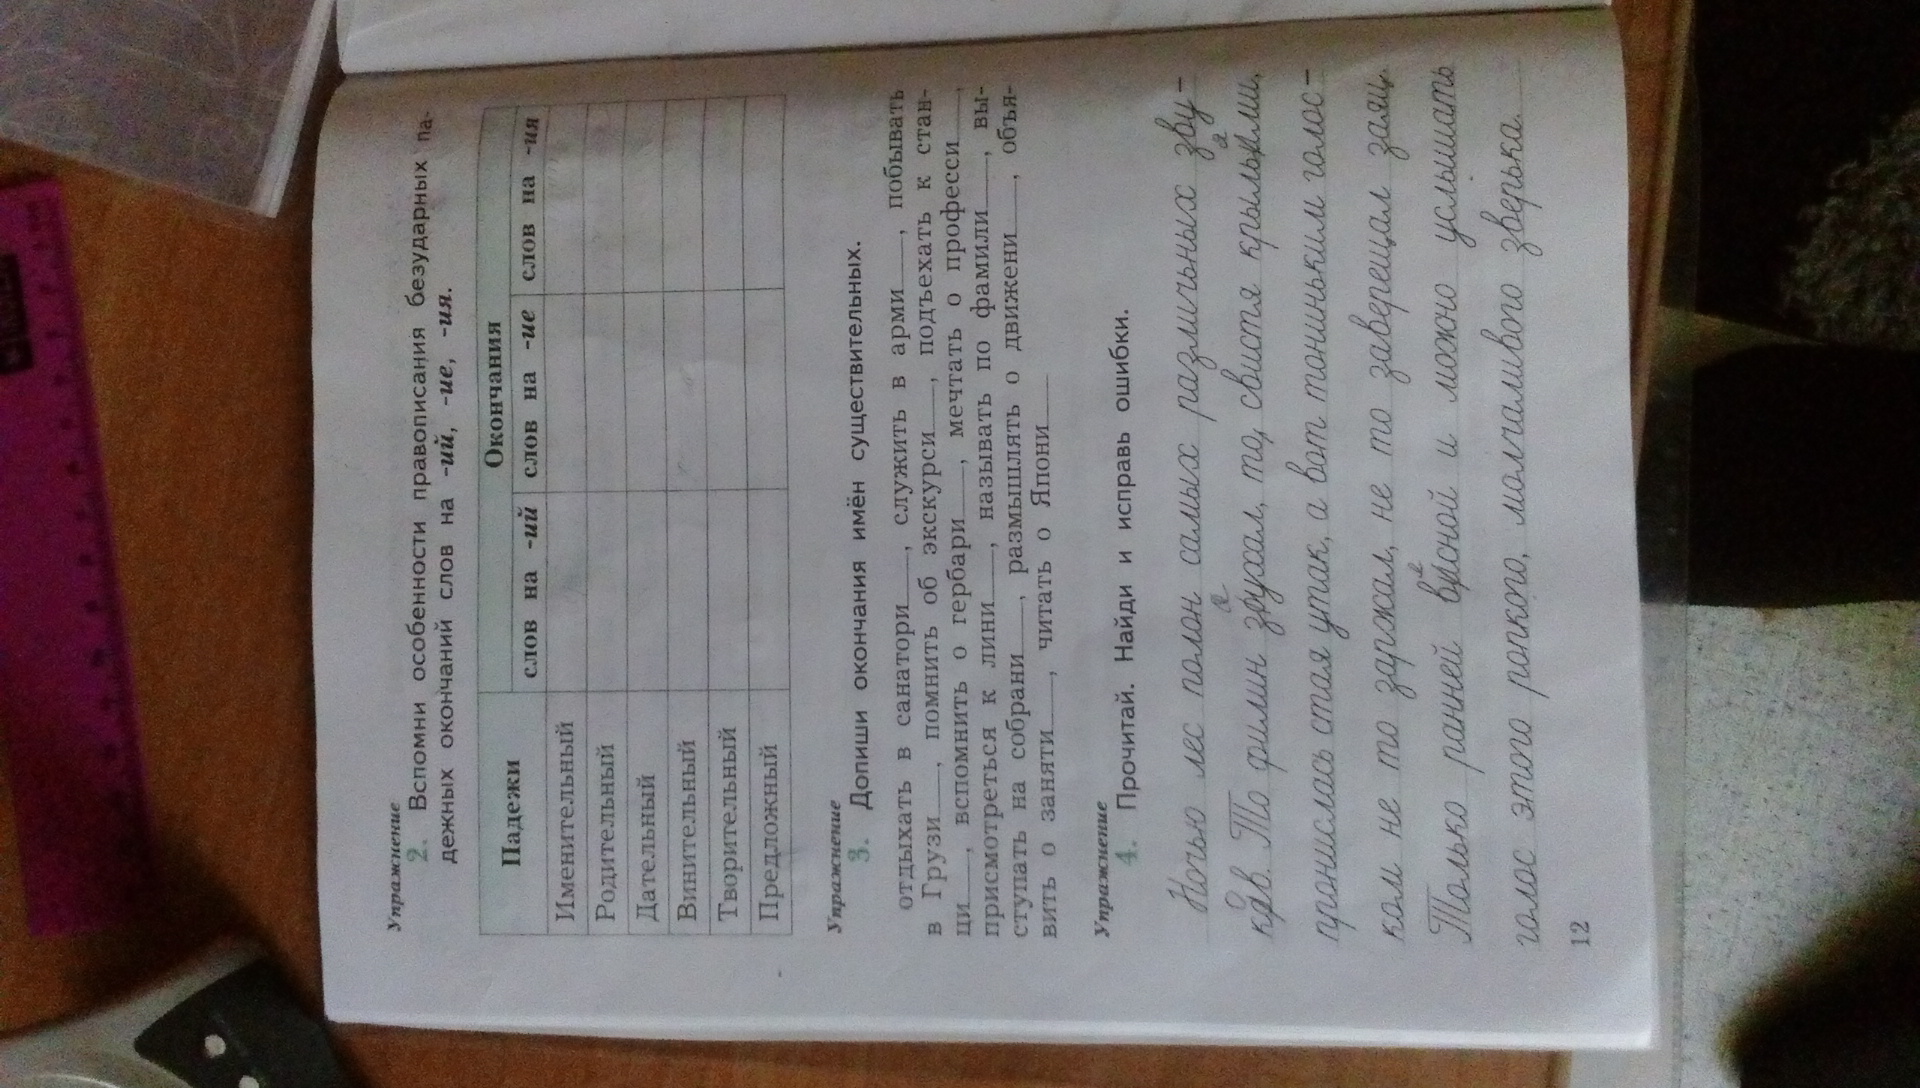 Упражнение
2. Вспомни особенности правописания безударных па-
дежных окончаний слов на -ий, -ие, -ия.
Падежи
Окончания
слов на -ий слов на -ие слов на -ия
Именительный
Родительный
Дательный
Винительный
Творительный
Предложный
Упражнение
3. Допиши окончания имён существительных.
отдыхать в санатори___, служить в арми___, побывать
в Грузи___, помнить об экскурси___, подъехать к стан-
ци___, вспомнить о гербари___, мечтать о професси___,
присмотреться к лини___, называть по фамили___, вы-
ступать на собрани___, размышлять о движени___, объя-
вить о заняти___, читать о Япони___
Упражнение
4. Прочитай. Найди и исправь ошибки.
Ночью лес полон самых различных зву-
ков. То филин ухал, то, свистя крыльями,
пронислась стая утак, а вот тониньким голос-
ком не то заржал, не то заверещал заяц.
Только ранней весной и можно услышать
голос этого ропкого, молчаливого зверька.
12